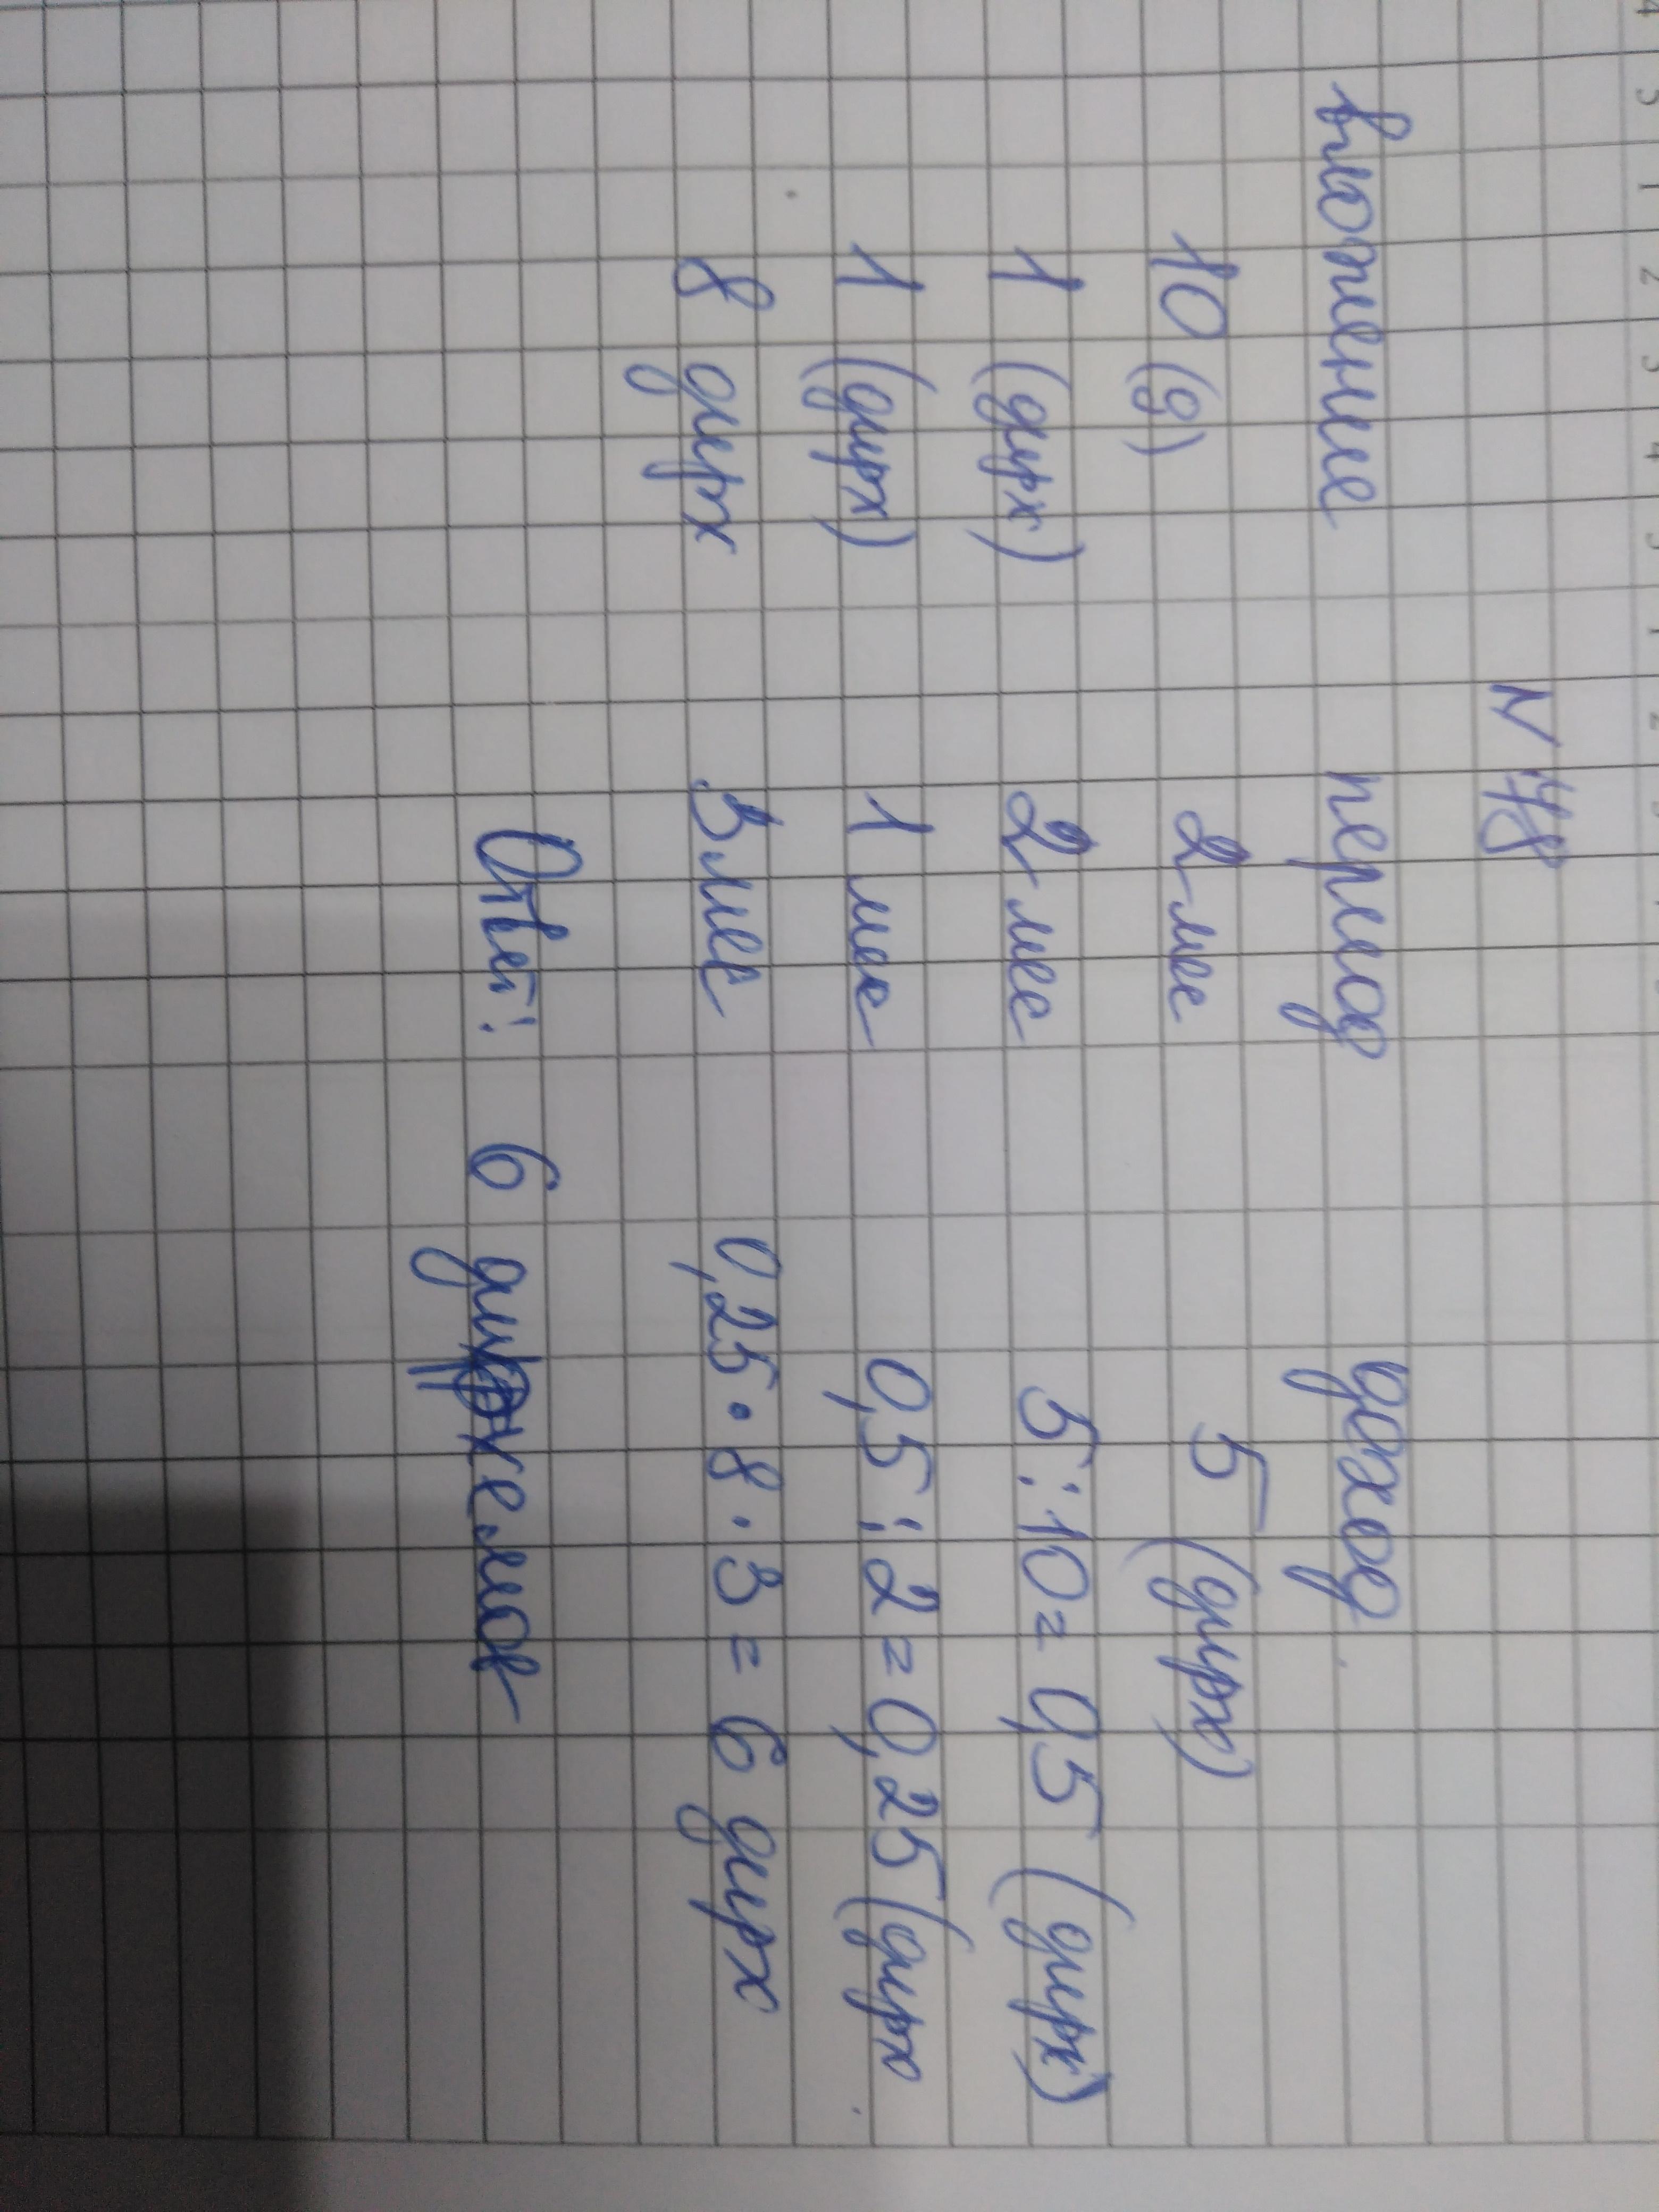 N 48
вложение период доход
10 (д) 2 мес 5 (дирх)
1 (дирх) 2 мес 5 : 10 = 0,5 (дирх)
1 (дирх) 1 мес 0,5 : 2 = 0,25 (дирх
8 дирх 3 мес 0,25 · 8 · 3 = 6 дирх
Ответ: 6 дирхемов